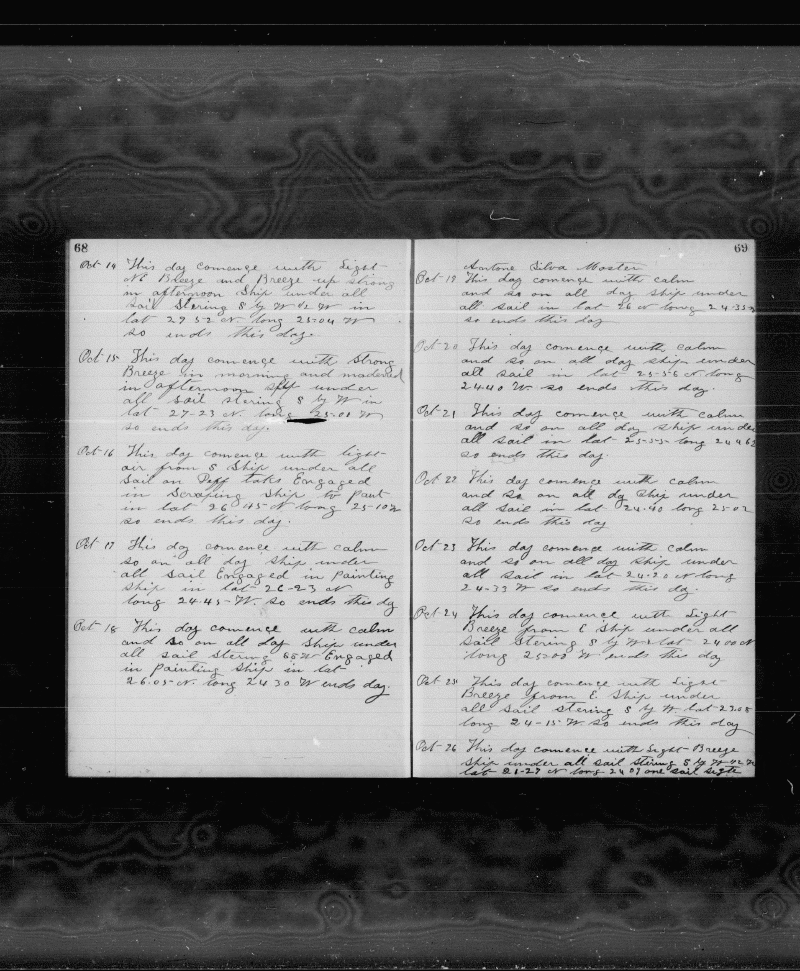 68
Oct 14 This day comenge with Light
NE Breeze and Breeze up strong
in afternoon Ship under all
sail Stering S by W ½ W in
lat 29 52 N long 25-04 W
so ends this day.
Oct 15 This day comenge with strong
Breeze in morning and
in afternoon under
all sail stering S by W in
lat 27-23 N. long 25-01 W
so ends this day
Oct-16 This day comenge with light
air from S Ship under all
sail on Engaged
in Scraping Ship to paint
in lat 26 45 N long 25-10 W
so ends this day.
Oct 17 This day comenge with calm
so on all day ship under
all sail Engaged in painting
ship in lat 26-23 N
long 24-45 W so ends this dy
Oct 18 This day comenge with calm
and so on all day Ship under
all sail stering Engaged
in painting Ship in lat
26.05 N. long 24 30 W ends day.
69
Antone Silva Master
Oct 19 This day comenge with calm
and so on all day ship under
all sail in lat 26 N long 24-33
so ends this day
Oct 20 This day comenge with calm
and so on all day ship under
all sail in lat 25-56 N long
24.40 W. so ends this day.
Oct 21 This day comenge with calm
and so on all day ship under
all sail in lat 25-55- long
so ends this day.
Oct 22 This day comenge with calm
and so on all dy ship under
all sail in lat 24-40 long 25-02
so ends this day
Oct 23 This day comenge with calm
and so on all day ship under
all sail in lat 24-20 N long
24-33 W so ends this dy.
Oct 24 This day comenge with Light
Breeze from E Ship under all
sail Stering S by W lat 24 00 N
long 25-00 W ends this day
Oct 25 This day comenge with Light
Breeze from E Ship under
all sail stering S by W lat
long 24-15 W so ends this day
Oct-26 This day comenge with Light Breeze
ship under all sail stering S by W ½ W
lat 21-29 N long 24 07 one sail sigte